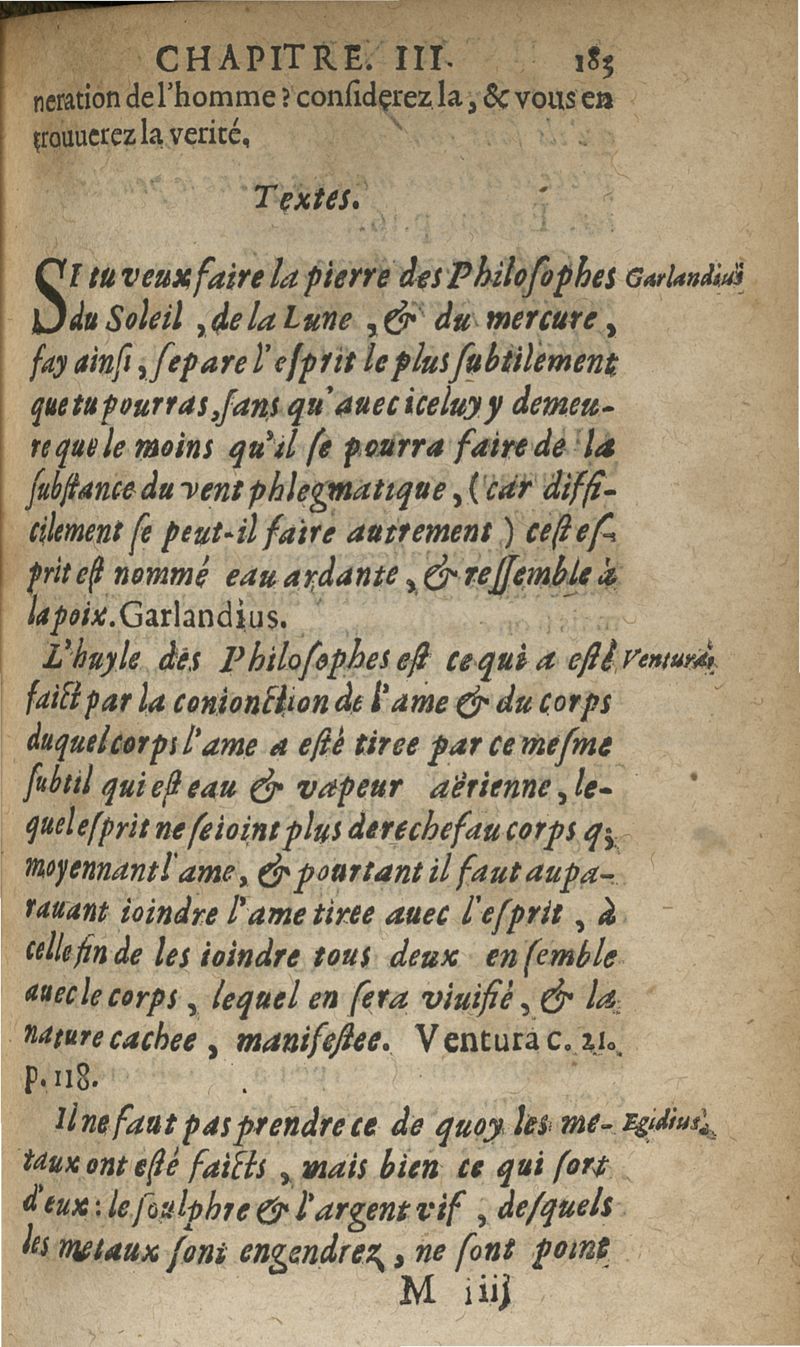 CHAPITRE. III. 183
neration de l'homme? conſiderez la, & vous en
trouuerez la verité,
Textes.
SI tu veux faire la pierre des Philoſophes Garlandius
du Soleil, de la Lune, & du mercure,
fay ainſi, ſepare l'eſprit le plus ſubtilement
que tu pourras, ſans qu'auec iceluy y demeu-
re que le moins qu'il ſe pourra faire de la
ſubſtance du vent phlegmatique, (car diffi-
cilement ſe peut-il faire autrement) ceſt eſ-
prit eſt nommé eau ardante, & reſſemble à
la poix. Garlandius.
L'huyle des Philoſophes eſt ce qui a eſté Ventura.
faict par la conionction de l'ame & du corps
duquel corps l'ame a eſté tiree par ce meſme
ſubtil qui eſt eau & vapeur aërienne, le-
quel eſprit ne ſe ioint plus derechef au corps q;
moyennant l'ame, & pourtant il faut aupa-
rauant ioindre l'ame tiree auec l'eſprit, à
celle fin de les ioindre tous deux enſemble
auec le corps, lequel en ſera viuifié, & la
nature cachee, manifeſtee. Ventura c. 21.
p. 118.
Il ne faut pas prendre ce de quoy les me- Egidius.
taux ont eſté faicts, mais bien ce qui ſort
d'eux: le ſoulphre & l'argent vif, deſquels
les metaux ſont engendrez, ne ſont point
M iiij